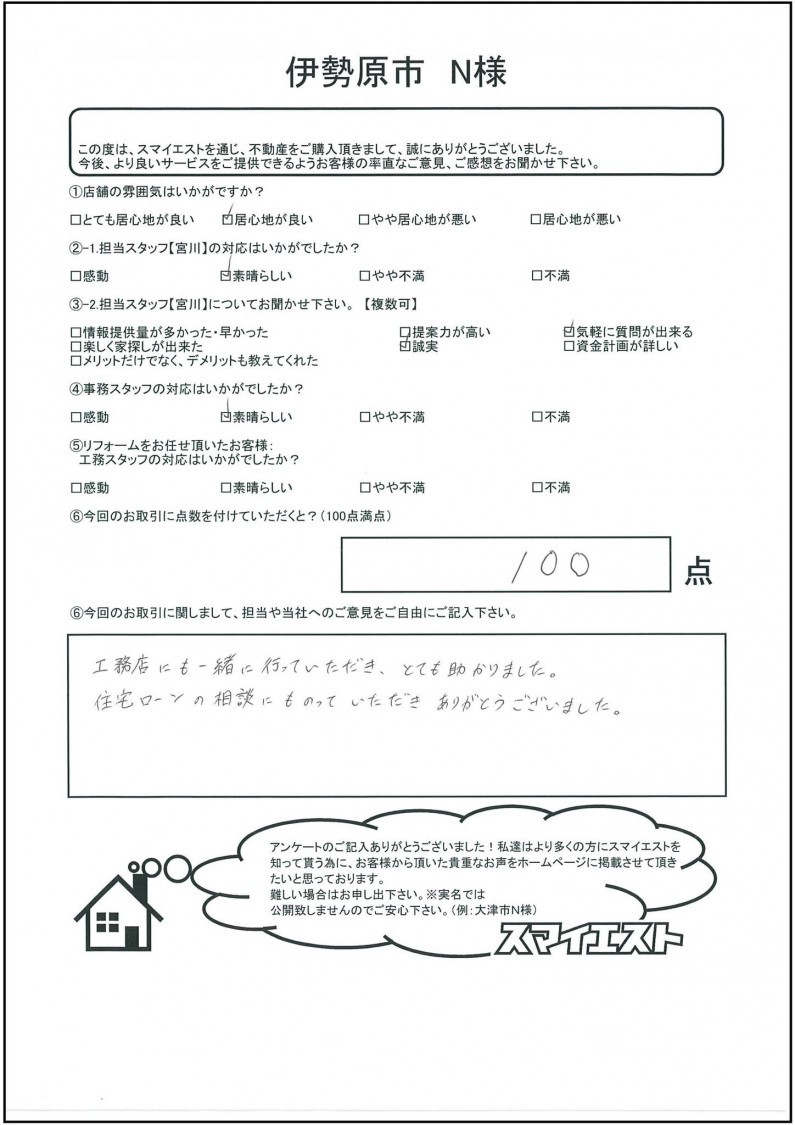 伊勢原市　N様
この度は、スマイエストを通じ、不動産をご購入頂きまして、誠にありがとうございました。
今後、より良いサービスをご提供できるようお客様の率直なご意見、ご感想をお聞かせ下さい。
①店舗の雰囲気はいかがですか？
□とても居心地が良い　☑居心地が良い　□やや居心地が悪い　□居心地が悪い
②-1.担当スタッフ【宮川】の対応はいかがでしたか？
□感動　☑素晴らしい　□やや不満　□不満
③-2.担当スタッフ【宮川】についてお聞かせ下さい。【複数可】
□情報提供量が多かった・早かった　□提案力が高い　☑気軽に質問が出来る
□楽しく家探しが出来た　☑誠実　□資金計画が詳しい
□メリットだけでなく、デメリットも教えてくれた
④事務スタッフの対応はいかがでしたか？
□感動　☑素晴らしい　□やや不満　□不満
⑤リフォームをお任せ頂いたお客様：
工務スタッフの対応はいかがでしたか？
□感動　□素晴らしい　□やや不満　□不満
⑥今回のお取引に点数を付けていただくと？（100点満点）
100 点
⑥今回のお取引に関しまして、担当や当社へのご意見をご自由にご記入下さい。
工務店にも一緒に行っていただき、とても助かりました。
住宅ローンの相談にものっていただきありがとうございました。
アンケートのご記入ありがとうございました！私達はより多くの方にスマイエストを
知って貰う為に、お客様から頂いた貴重なお声をホームページに掲載させて頂き
たいと思っております。
難しい場合はお申し出下さい。※実名では
公開致しませんのでご安心下さい。（例：大津市N様）
スマイエスト